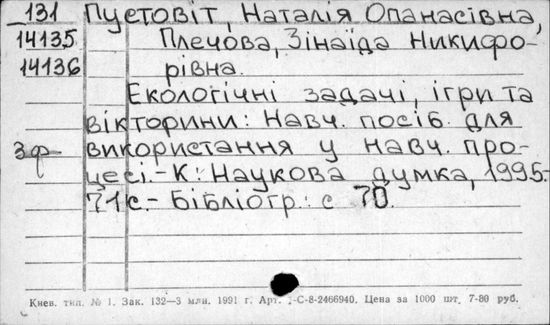 131 Пустовіт, Наталія Опанасівна,
14135 Плечова, Зінаїда Никифо-
14136 рівна.
Екологічні задачі, ігри та
вікторини: Навч. посіб. для
3ф використання у навч. про-
цесі.- К: Наукова думка, 1995.-
71 с.- Бібліогр.: с 70.
Киев. тип. № 1. Зак. 132—3 млн. 1991 г. Арт. -С-8-2466940. Цена за 1000 шт. 7-80 руб.